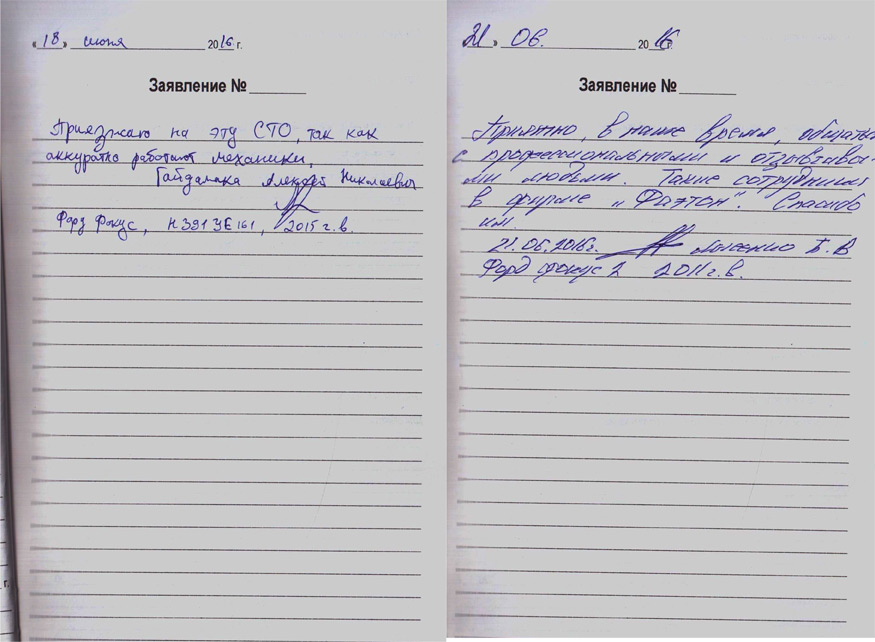 «18» июня 2016 г.
Заявление №
Приезжаю на эту СТО, так как
аккуратно работают механики.
Гайдамака Алексей Николаевич
Форд Фокус, Н 391 УЕ 161, 2015 г.в.
г.
21 » 06. 2016 г
Заявление №
Приятно, в наше время, общать
с профессиональными и отзывчивы-
ми людьми. Такие сотрудники
в фирме „Фаэтон". Спасибо
им.
21.06.2016г. Е.В
Форд фокус 2 2011 г.в.